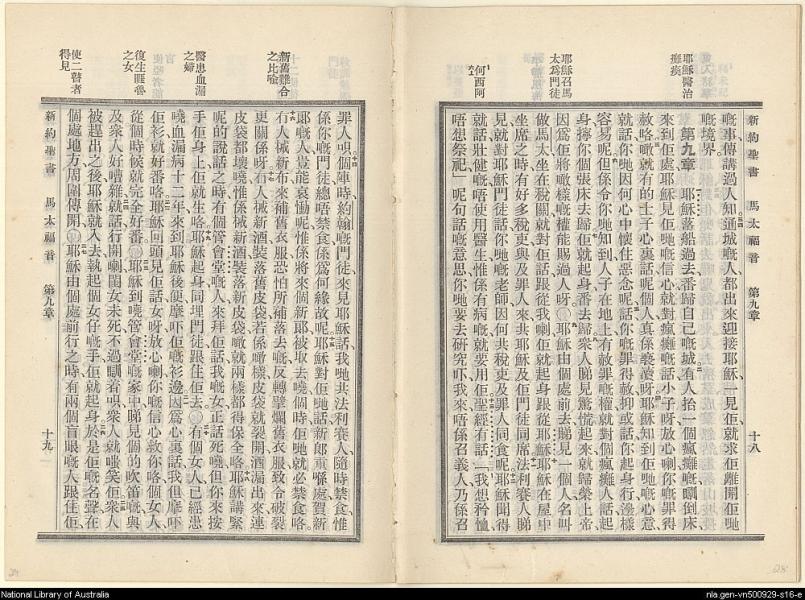 新約聖書 馬太福音 第九章 十八
嘅事傳講過人知通城嘅人都出來迎接耶穌一見佢就求佢離開佢哋
嘅境界
耶穌醫治
癱瘓
第九章 耶穌落船過去番歸自己嘅城有人抬一個瘋癱嘅瞓倒床
來到佢處耶穌見佢哋嘅信心就對瘋癱嘅話小子呀放心喇你嘅罪得
赦咯噉就有的士子心裏話呢個人真係褻瀆呀耶穌知到佢哋嘅心意
就話你哋因何心中懷住惡念呢話你嘅罪得赦抑或話你起身行邊樣
容易呢但係令你哋知到人子在地上有赦罪嘅權就對個瘋癱人話起
身擰你個張床去歸佢就起身番去歸衆人睇見驚慌起來就歸榮上帝
耶穌召馬
太為門徒
因爲佢將噉樣嘅權能賜過人呀○耶穌由個處前去睇見一個人名叫
做馬太坐在稅關就對佢話跟從我喇佢就起身跟從耶穌耶穌在屋中
坐席之時有好多稅吏與及罪人來共耶穌及佢門徒同席法利賽人睇
見就對耶穌門徒話你哋嘅老師因何共稅吏及罪人同食呢耶穌聞得
何西阿
就話壯健嘅唔使用醫生惟係有病嘅就要用佢聖經有話「我想矜恤
唔想祭祀」呢句話嘅意思你哋要去研究吓我來唔係召義人乃係召
罪人呮個陣時約翰嘅門徒來見耶穌話我哋共法利賽人隨時禁食惟
係你嘅門徒總唔禁食係爲何緣故呢耶穌對佢哋話新郎重喺處賀新
郎嘅人豈能哀慟呢惟係將來個新郎被取去嘵個時佢哋就必禁食咯
新舊難合
之比喻
冇人搣新布來補舊衣服恐怕所補落去嘅反轉擘爛舊衣服致令破裂
更關係呀冇人搣新酒裝落舊皮袋若係噉樣皮袋就裂開酒漏出來連
皮袋都壞嘵惟係搣新酒裝落新皮袋噉就兩樣都得保全咯耶穌講緊
呢的說話之時有個管會堂嘅人來拜佢話我嘅女正話死嘵但你來按
手佢身上佢就生咯耶穌起身同埋門徒跟住佢去○有個女人已經患
醫患血漏
之婦
嘵血漏病十二年來到耶穌後便摩吓佢嘅衫邊因爲心裏話我但摩吓
佢衫就好番咯耶穌回頭見佢話女呀放心喇你嘅信心救你咯個女人
復生睚魯
之女
從個時候就完全好番○耶穌到嘵管會堂嘅家中睇見個的吹笛嘅與
及衆人好嘈雜就話行開喇閨女未死不過瞓着呮衆人就嗤笑佢衆人
被趕出之後耶穌就入去執起個女仔嘅手佢就起身於是佢嘅名聲在
使二瞽者
得見
個處地方周圍傳開○耶穌由個處前行之時有兩個盲眼嘅人跟住佢
新約聖書 馬太福音 第九章 十九
National Library of Australia
nla.gen-vn500929-s16-e